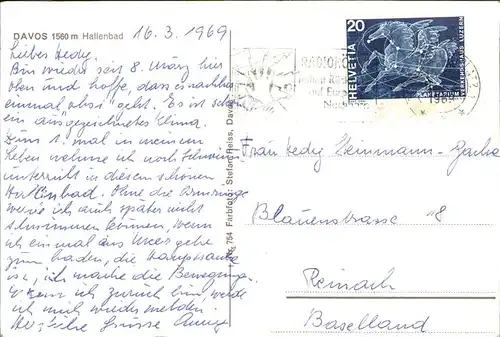 DAVOS 1560 m Hallenbad
16.3.1969
Liebes Hedy.
Bin wieder seit 8. März hier
oben und hoffe, dass es nachher
einmal obsi geht. Es ist schon
ein ausgezeichnetes Klima.
Zum 1. mal in meinem
Leben nehme ich noch Schwimm
unterricht in diesem schönen
Hallenbad. Ohne die
werde ich auch später nicht
schwimmen können, wenn
ich einmal ans Meer gehe
zum baden, die Hauptsache
ist, ich mache die Bewegung.
Wenn ich zurück bin, werde
ich mich wieder melden.
Herzliche Grüsse
Nr. 754 Farbfoto: Stefan Reiss, Davos
HELVETIA
20
PLANETARIUM
LUZERN
1969
Frau Hedy
Blauenstrasse 18
Reinach
Baselland